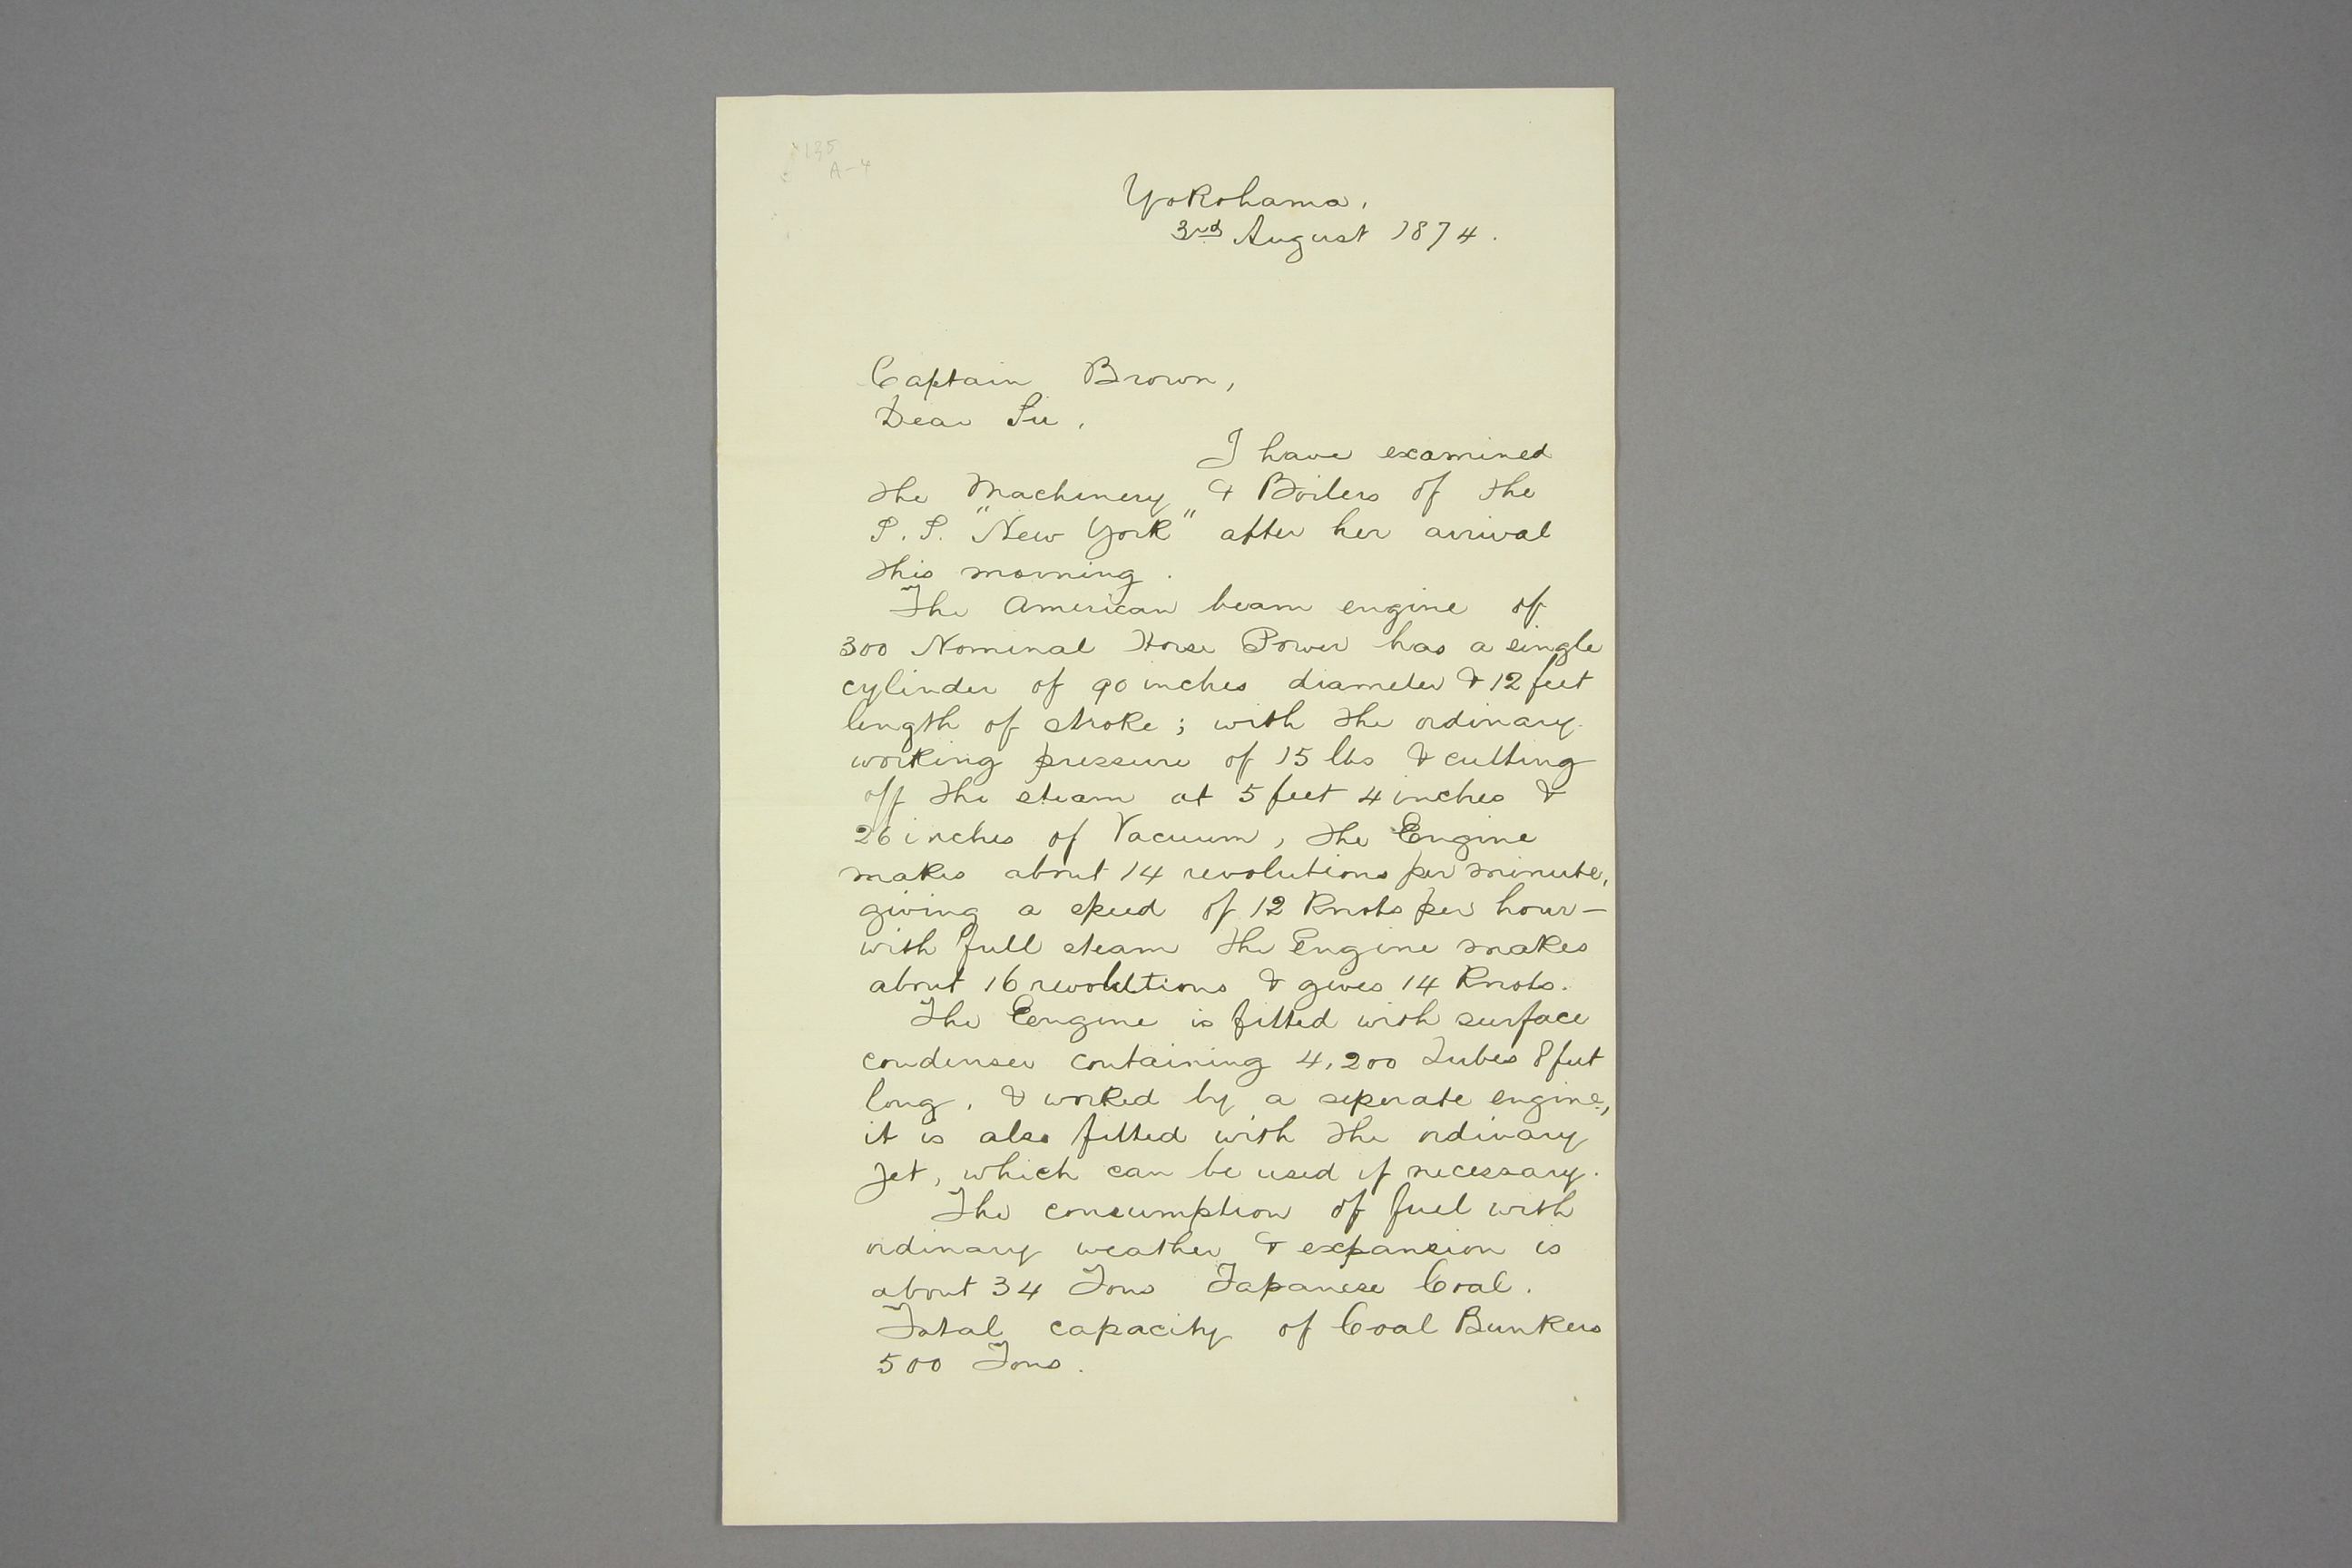 135
A-4
Yokohama,
3rd August 1874.
Captain Brown,
Dear Sir,
I have examined
the Machinery & Boilers of the
S.S. "New York" after her arrival
this morning.
The American beam engine of
300 Nominal Horse Power has a single
cylinder of 90 inches diameter & 12 feet
length of stroke; with the ordinary
working pressure of 15 lbs & cutting
off the steam at 5 feet 4 inches &
26 inches of Vacuum, the Engine
makes about 14 revolutions per minute,
giving a speed of 12 Knots per hour—
with full steam the Engine makes
about 16 revolutions & gives 14 Knots.
The Eengine is fitted with surface
condenser containing 4,200 Tubes 8 feet
long, & worked by a seperate engine,
it is also fitted with the ordinary
Jet, which can be used if necessary.
The consumption of fuel with
ordinary weather & expansion is
about 34 Tons Japanese Coal.
Total capacity of Coal Bunkers
500 Tons.